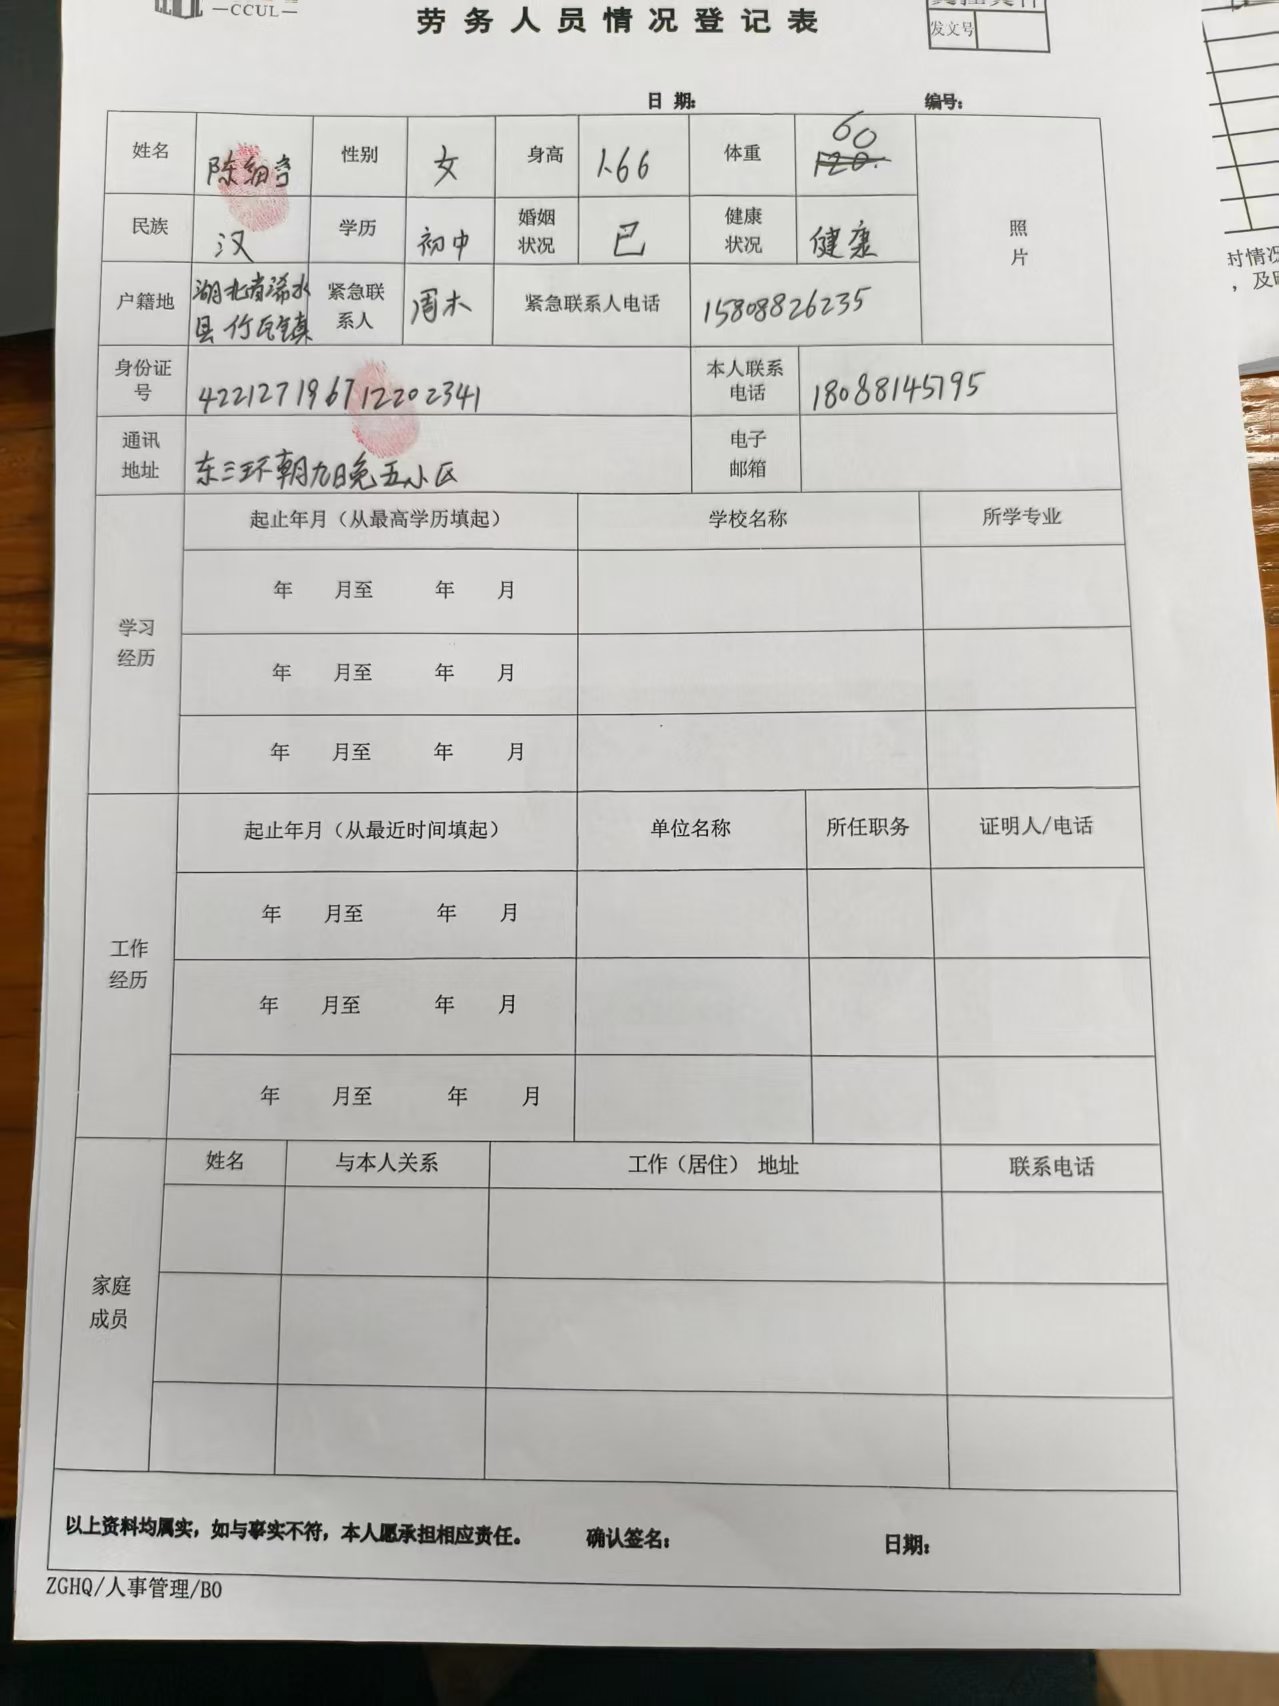 —CCUL—
劳务人员情况登记表
发文号
日 期:
编号:
姓名 陈细 性别 女 身高 1.66 体重 60
民族 汉 学历 初中 婚姻状况 已 健康状况 健康
照片
户籍地 湖北省浠水县竹瓦镇 紧急联系人 周木 紧急联系人电话 15808826235
身份证号 422127196712202341 本人联系电话 18088145795
通讯地址 东三环朝九日 五小区 电子邮箱
学习经历
起止年月（从最高学历填起） 学校名称 所学专业
年 月至 年 月
年 月至 年 月
年 月至 年 月
工作经历
起止年月（从最近时间填起） 单位名称 所任职务 证明人/电话
年 月至 年 月
年 月至 年 月
年 月至 年 月
家庭成员
姓名 与本人关系 工作（居住） 地址 联系电话
以上资料均属实，如与事实不符，本人愿承担相应责任。 确认签名: 日期:
ZGHQ/人事管理/B0
时情况
，及时